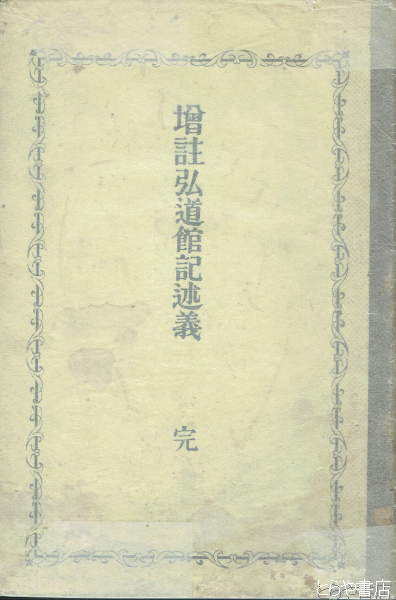 增註弘道館記述義
完
とらや書店